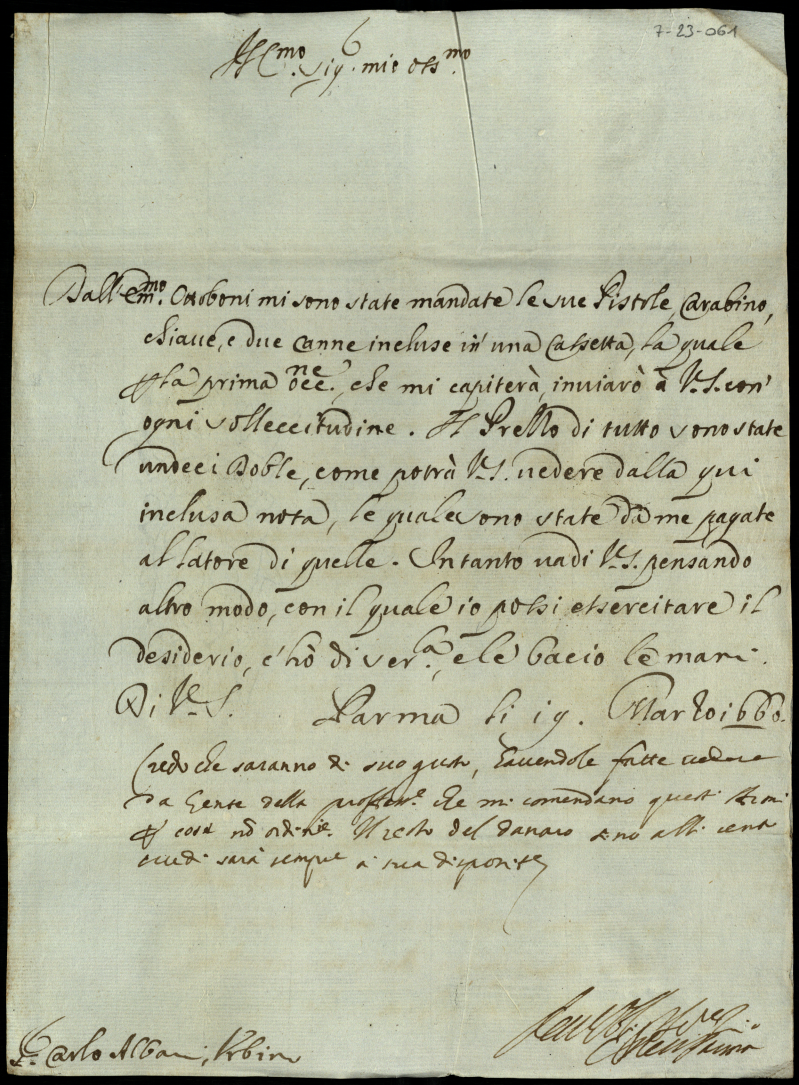 7-23-061
Ill.mo Sig.r mio oss.mo
Dall'Em.mo Otoboni mi sono state mandate le sue Pistole, Carabino,
chiaue, e due canne incluse in' una Cassetta, la quale
p la prima occ.ne, che mi capiterà, inuiarò à V.S. con'
ogni solleccitudine. Il Prezzo di tutto sono state
undeci Doble, come potrà V.S. uedere dalla qui
inclusa nota, le quale sono state dà me pagate
al latore di quelle. Intanto uadi V.S. pensando
altro modo, con il quale io possi essercitare il
desiderio, c'hò di ser.la, e le bacio le mani.
Di V.S. Parma li 19. Marzo 1660.
Credo che saranno di suo gusto, hauendole fatte uedere
da gente della profess.e che mi comendano questi Armi
p cosa nõ ordin.e. Il resto del danaro sino alli cento
scudi sarà sempre a sua disposit.e
S.r Carlo Albani, Vrbino